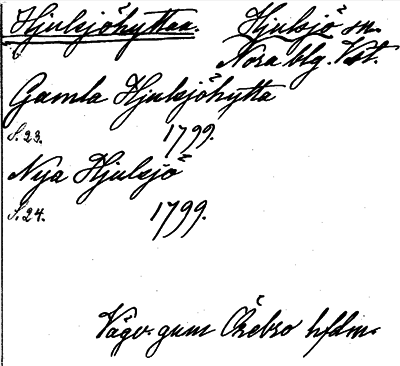 Hjulsjöhyttan. Hjulsjö sn.
Nora blg. Vst.
Gamla Hjulsjöhytta
S. 23. 1799.
Nya Hjulsjö
S. 24. 1799.
Vägv. gm Örebro hfdm.